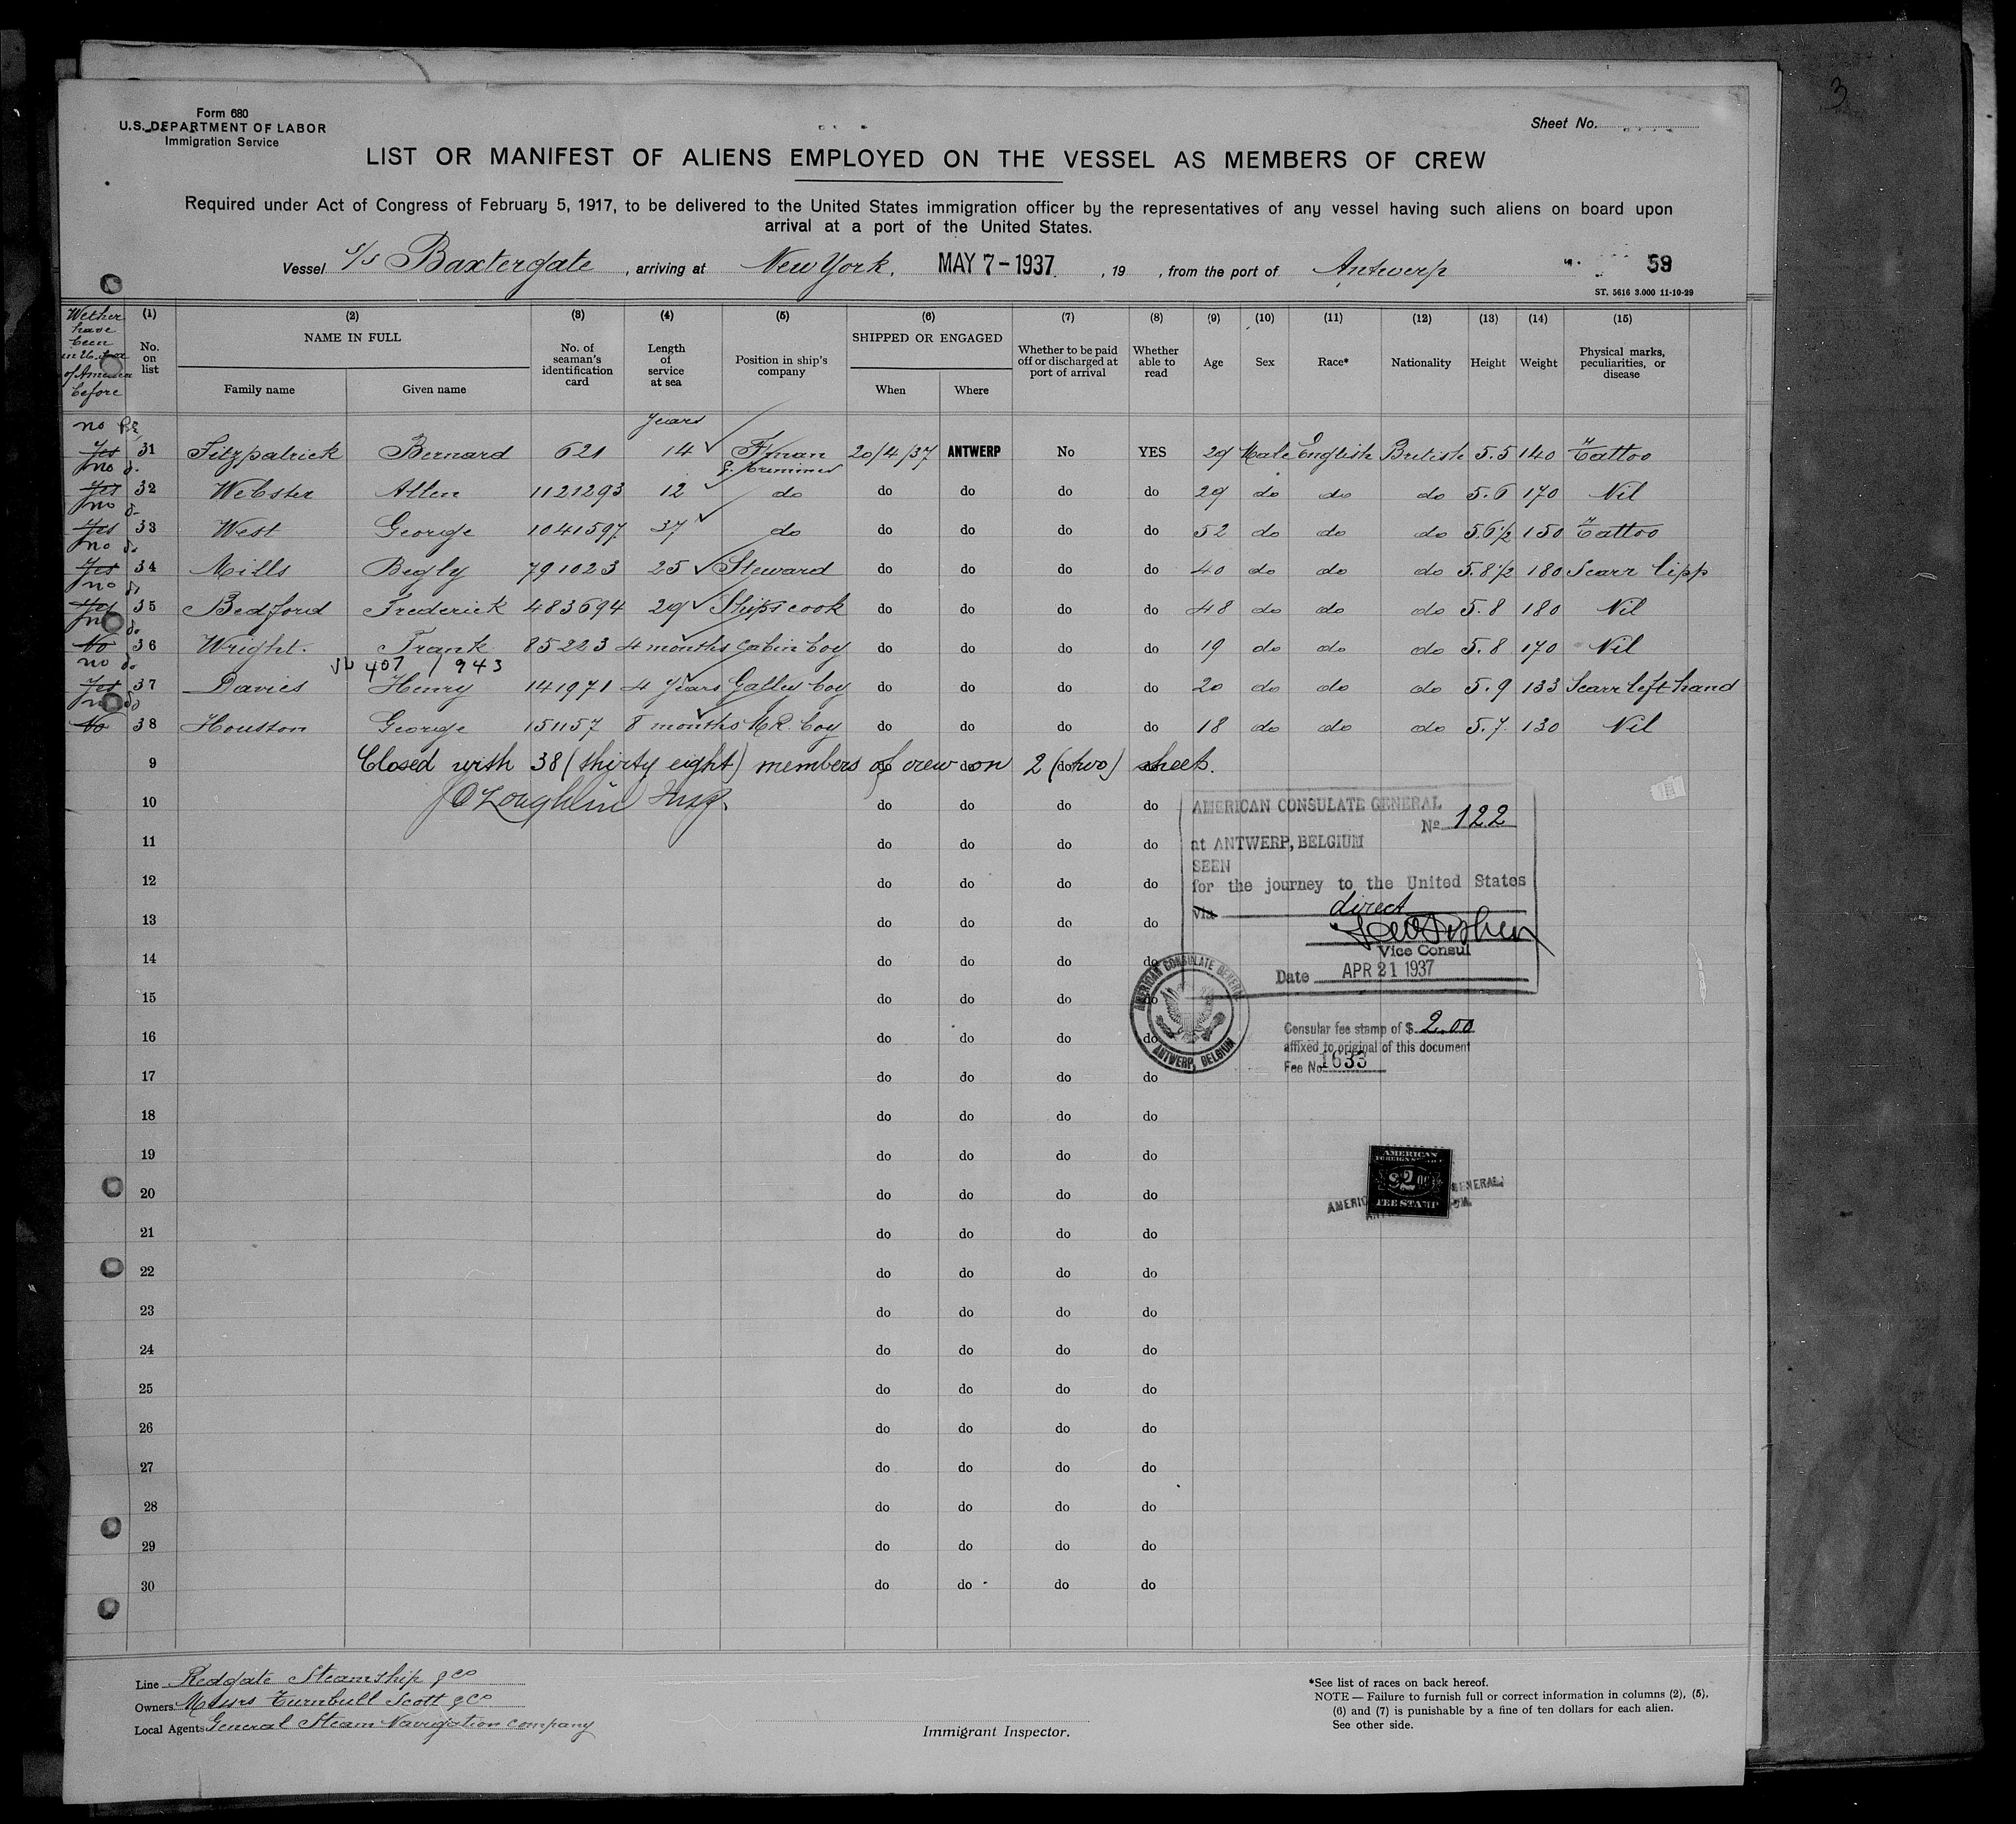 3
Form 680
U.S. DEPARTMENT OF LABOR
Immigration Service
Sheet No.
LIST OR MANIFEST OF ALIENS EMPLOYED ON THE VESSEL AS MEMBERS OF CREW
Required under Act of Congress of February 5, 1917, to be delivered to the United States immigration officer by the representatives of any vessel having such aliens on board upon
arrival at a port of the United States.
Vessel s/s Baxtergate, arriving at New York, MAY 7-1937, 19 , from the port of Antwerp 59
ST. 5616 3.000 11-10-29
Wether have been in U. of America before (1) No. on list (2) NAME IN FULL Family name Given name (3) No. of seaman's identification card (4) Length of service at sea (5) Position in ship's company (6) SHIPPED OR ENGAGED When Where (7) Whether to be paid off or discharged at port of arrival (8) Whether able to read (9) Age (10) Sex (11) Race* (12) Nationality (13) Height (14) Weight (15) Physical marks, peculiarities, or disease
no years
Yes 31 Fitzpatrick Bernard 621 14 F/man 20/4/37 ANTWERP No YES 29 Male English British 5.5 140 Tattoo
no
Yes 32 Webster Allen 1121293 12 do do do do do 29 do do do 5.6 170 Nil
no
Yes 33 West George 1041597 37 do do do do do 52 do do do 5.6 1/2 150 Tattoo
no do
Yes 34 Mills Begly 791023 25 Steward do do do do 40 do do do 5.8 1/2 180 Scarr lipp
no do
Yes 35 Bedford Frederick 483694 29 Ships cook do do do do 48 do do do 5.8 180 Nil
no do
No 36 Wright. Frank 85223 4 months cabin boy do do do do 19 do do do 5.8 170 Nil
no do 407 / 943
Yes 37 Davies Henry 141971 4 years Galley boy do do do do 20 do do do 5.9 133 Scarr left hand
no do
No 38 Houston George 151157 8 months M.R. boy do do do do 18 do do do 5.7. 130 Nil
9 Closed with 38 (thirty eight) members of crew on 2 (two) sheets. do do do do
10 J O'Loughlin Insp. do do do do
11 do do do do
12 do do do do
13 do do do do
14 do do do do
15 do do do do
16 do do do do
17 do do do do
18 do do do do
19 do do do do
20 do do do do
21 do do do do
22 do do do do
23 do do do do
24 do do do do
25 do do do do
26 do do do do
27 do do do do
28 do do do do
29 do do do do
30 do do do do
AMERICAN CONSULATE GENERAL
No 122
at ANTWERP, BELGIUM
SEEN
for the journey to the United States
via direct
Vice Consul
Date APR 21 1937
AMERICAN CONSULATE GENERAL
ANTWERP, BELGIUM
Consular fee stamp of $ 2.00
affixed to original of this document
Fee No. 1633
AMERICAN
FOREIGN SERVICE
$2.00
FEE STAMP
Line Redgate Steamship & Co
Owners Messrs Turnbull Scott & Co
Local Agents General Steam Navigation company
Immigrant Inspector.
*See list of races on back hereof.
NOTE — Failure to furnish full or correct information in columns (2), (5),
(6) and (7) is punishable by a fine of ten dollars for each alien.
See other side.